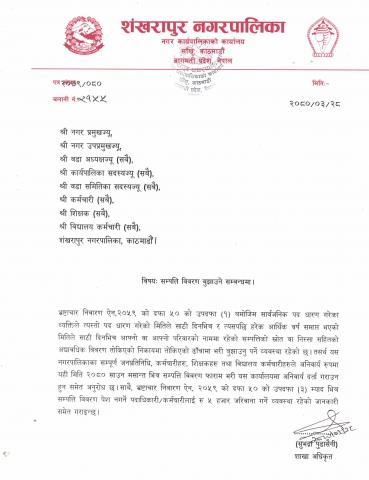 शंखरापुर नगरपालिका
नगर कार्यपालिकाको कार्यालय
साँखु, काठमाडौं
बागमती प्रदेश, नेपाल
पत्र २०७९/०८०
मिति:-
चलानी नं. २९५५
२०८०/०३/२८
श्री नगर प्रमुखज्यू,
श्री नगर उपप्रमुखज्यू,
श्री वडा अध्यक्षज्यू (सबै),
श्री कार्यपालिका सदस्यज्यू (सबै),
श्री वडा समितिका सदस्यज्यू (सबै),
श्री कर्मचारी (सबै),
श्री शिक्षक (सबै),
श्री विद्यालय कर्मचारी (सबै),
शंखरापुर नगरपालिका, काठमाडौं।
विषयः सम्पत्ति विवरण बुझाउने सम्बन्धमा।
भ्रष्टाचार निवारण ऐन,२०५९ को दफा ५० को उपदफा (१) बमोजिम सार्वजनिक पद धारण गरेका
व्यक्तिले त्यस्तो पद धारण गरेको मितिले साठी दिनभित्र र त्यसपछि हरेक आर्थिक वर्ष समाप्त भएको
मितिले साठी दिनभित्र आफ्नो वा आफ्नो परिवारको नाममा रहेको सम्पत्तिको स्रोत वा निस्सा सहितको
अद्यावधिक विवरण तोकिएको निकायमा तोकिएको ढाँचामा भरी बुझाउनु पर्ने व्यवस्था रहेको छ। तसर्थ यस
नगरपालिकाका सम्पूर्ण जनप्रतिनिधि, कर्मचारीहरू, शिक्षकहरू तथा विद्यालय कर्मचारीहरूले अनिवार्य रूपमा
यही मिति २०८० साउन मसान्त भित्र सम्पत्ति विवरण फाराम भरी यस कार्यालयमा अनिवार्य दर्ता गराउन
हुन समेत अनुरोध छ। साथै, भ्रष्टाचार निवारण ऐन, २०५९ को दफा ५० को उपदफा (३) म्याद भित्र
सम्पत्ति विवरण पेश नगर्ने पदाधिकारी/कर्मचारीलाई रु ५ हजार जरिवाना गर्ने व्यवस्था रहेको जानकारी
समेत गराइन्छ।
(सुभद्रा पुडासैनी)
शाखा अधिकृत